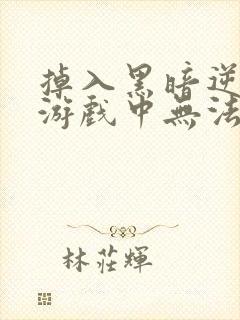 掉入黑暗逆
游戲中無法
林莊輝